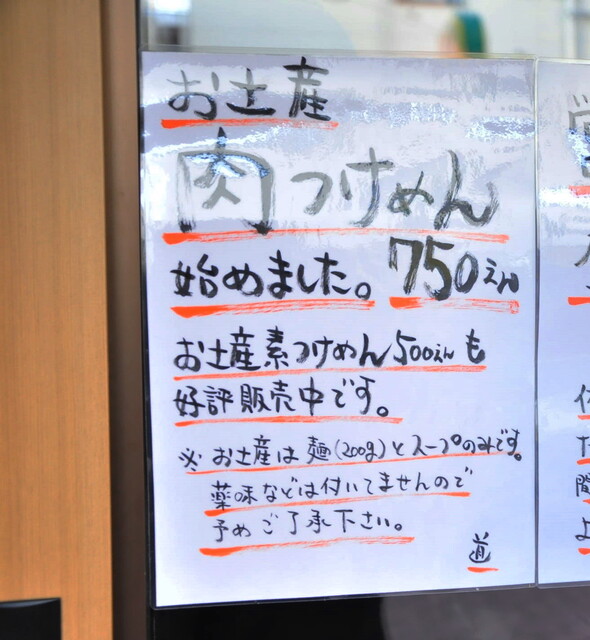 お土産
肉つけめん
始めました。750えん
お土産素つけめん500えんも
好評販売中です。
※お土産は麺(200g)とスープのみです。
薬味などは付いてませんので
予めご了承下さい。
道